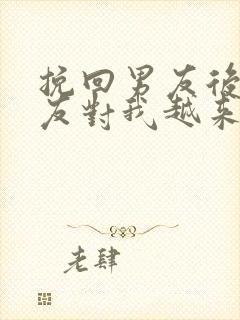 挽回男友後
友對我越来
老肆